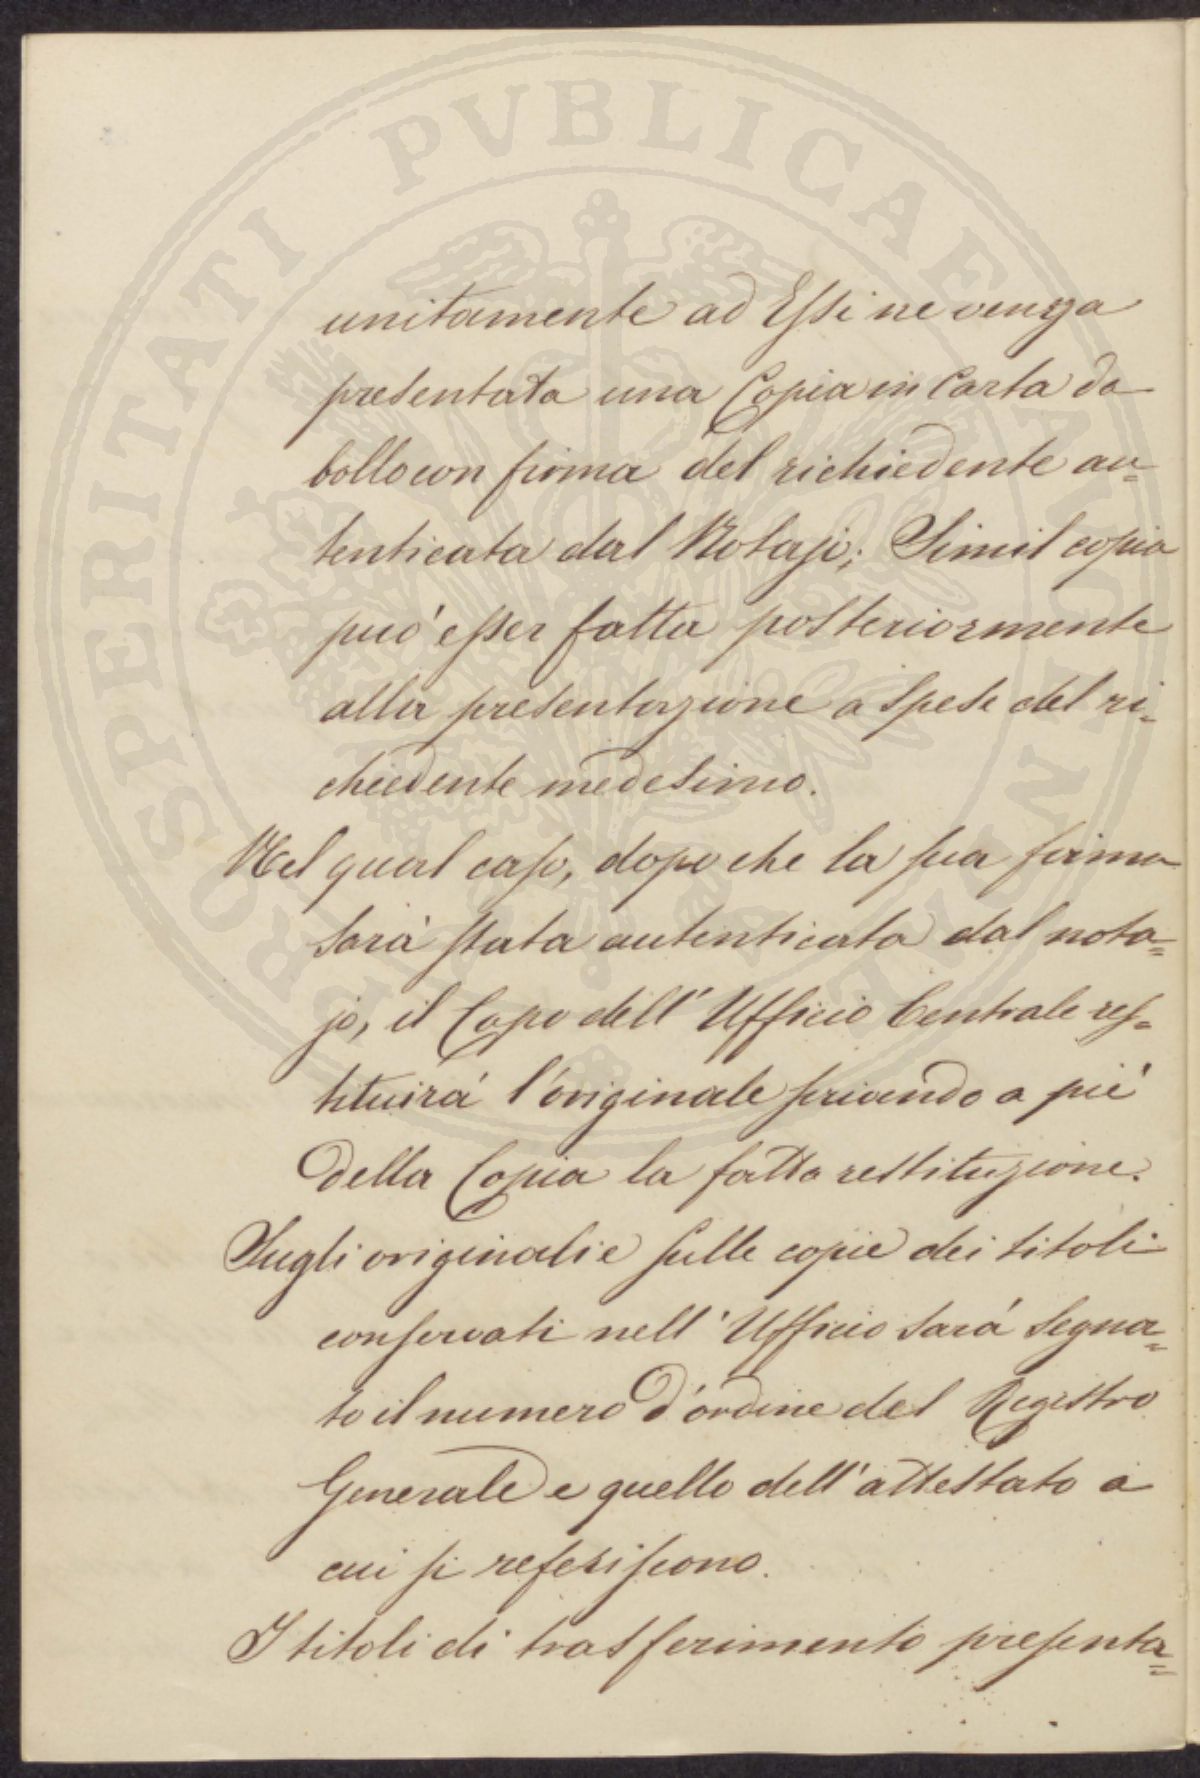 PROSPERITATI PVBLICAE AVGENDAE
unitamente ad Essi ne venga
presentata una Copia in Carta da
bollo con firma del richiedente au=
tenticata dal Notajo; Simil copia
può esser fatta posteriormente
alla presentazione a spese del ri=
chiedente medesimo.
Nel qual caso, dopo che la sua firma
sarà stata autenticata dal nota=
jo, il Capo dell' Ufficio Centrale res=
tituirà l'originale scrivendo a piè
della Copia la fatta restituzione.
Sugli originali e sulle copie dei titoli
conservati nell' Ufficio sarà segna=
to il numero d'ordine del Registro
Generale e quello dell' attestato a
cui si referiscono.
I titoli di trasferimento presenta=